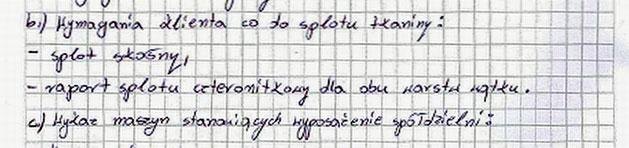 b.) Wymagania klienta co do splotu tkaniny:
- splot skośny,
- raport splotu czteronitkowy dla obu warstw wątku.
c.) Wykaz maszyn stanowiących wyposażenie spółdzielni: